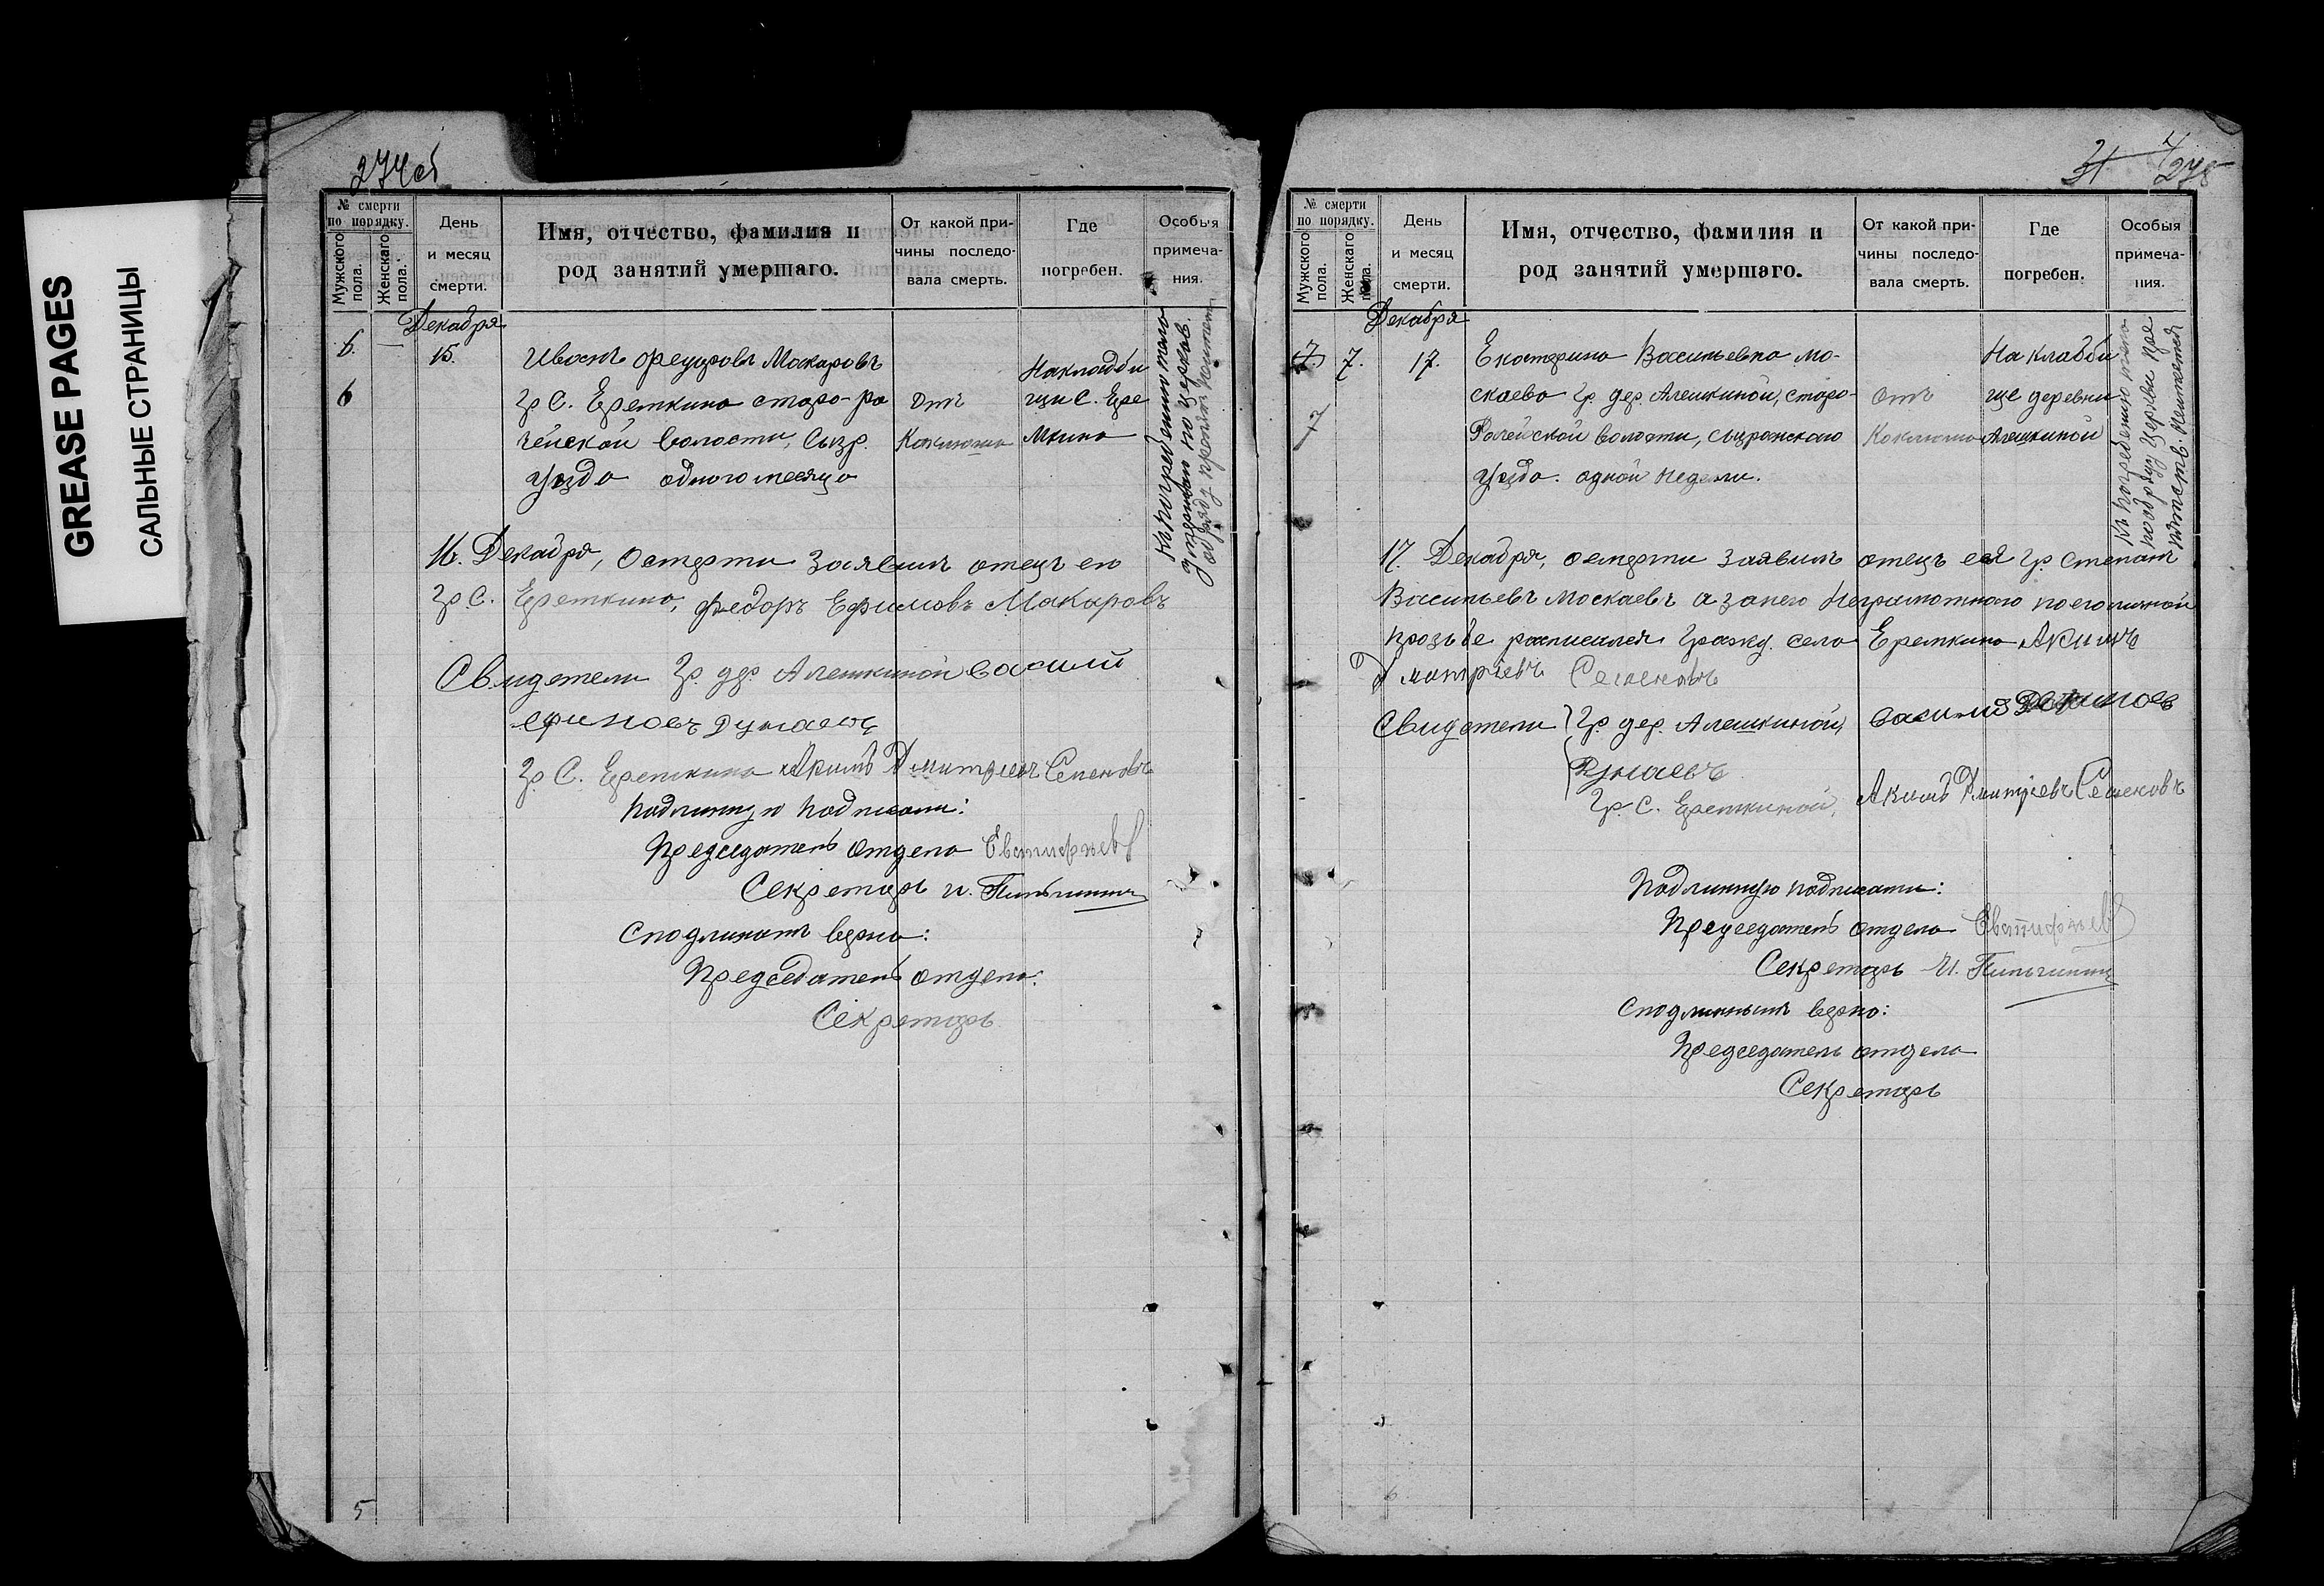 GREASE PAGES
САЛЬНЫЕ СТРАНИЦЫ
274об
№ смерти по порядку.
Мужского пола.
Женскаго пола.
День и месяц смерти.
Имя, отчество, фамилия и род занятий умершаго.
От какой причины последовала смерть.
Где погребен.
Особыя примечания.
Декабря
6.
—
15.
6
Иванъ Федоровъ Макаровъ
гр С. Еремкина старо-ра
чейской волости, Сызр.
уезда одного месяца
Отъ
Коклюша
На кладби
щи С. Ере
мкина
К погребению тело
по церков.
обряду препят. неимеет
16. Декабря, о смерти заявилъ отецъ его
гр С. Еремкина, Федоръ Ефимовъ Макаровъ
Свидетели гр. дер. Алешкиной василий
ефимовъ Думаевъ
гр. С. Еремкина Акимъ Дмитриевъ Семеновъ
Подлинную подписали:
Председатель отдела Евстифеев
Секретарь И.
С подлиннымъ верно:
Председатель отдела:
Секретарь
5
275
№ смерти по порядку.
Мужского пола.
Женскаго пола.
День и месяц смерти.
Имя, отчество, фамилия и род занятий умершаго.
От какой причины последовала смерть.
Где погребен.
Особыя примечания.
Декабря
7.
7.
17.
7
Екатерина Васильевна Мо-
скаева гр. дер. Алешкиной, старо-
Рачейской волости, Сызранскаго
уезда. одной недели.
Отъ
Коклюша
На кладби
ще деревни
Алешкиной
Къ погребению тела
по обряду церкви пре
пятств. неимеется
17. Декабря, о смерти заявилъ отецъ ея гр. Степанъ
Васильевъ Москаевъ а за него неграмотного по его личной
прозьбе расписался гражд. села Еремкина Акимъ
Дмитріевъ Семеновъ
Свидетели гр. дер. Алешкиной, василий Ефимовъ
Думаевъ
Гр. С. Еремкиной, Акимъ Дмитріевъ Семеновъ
Подлинную подписали:
Председатель отдела Евстифеев
Секретарь И.
С подлиннымъ верно:
Председатель отдела
Секретарь
6